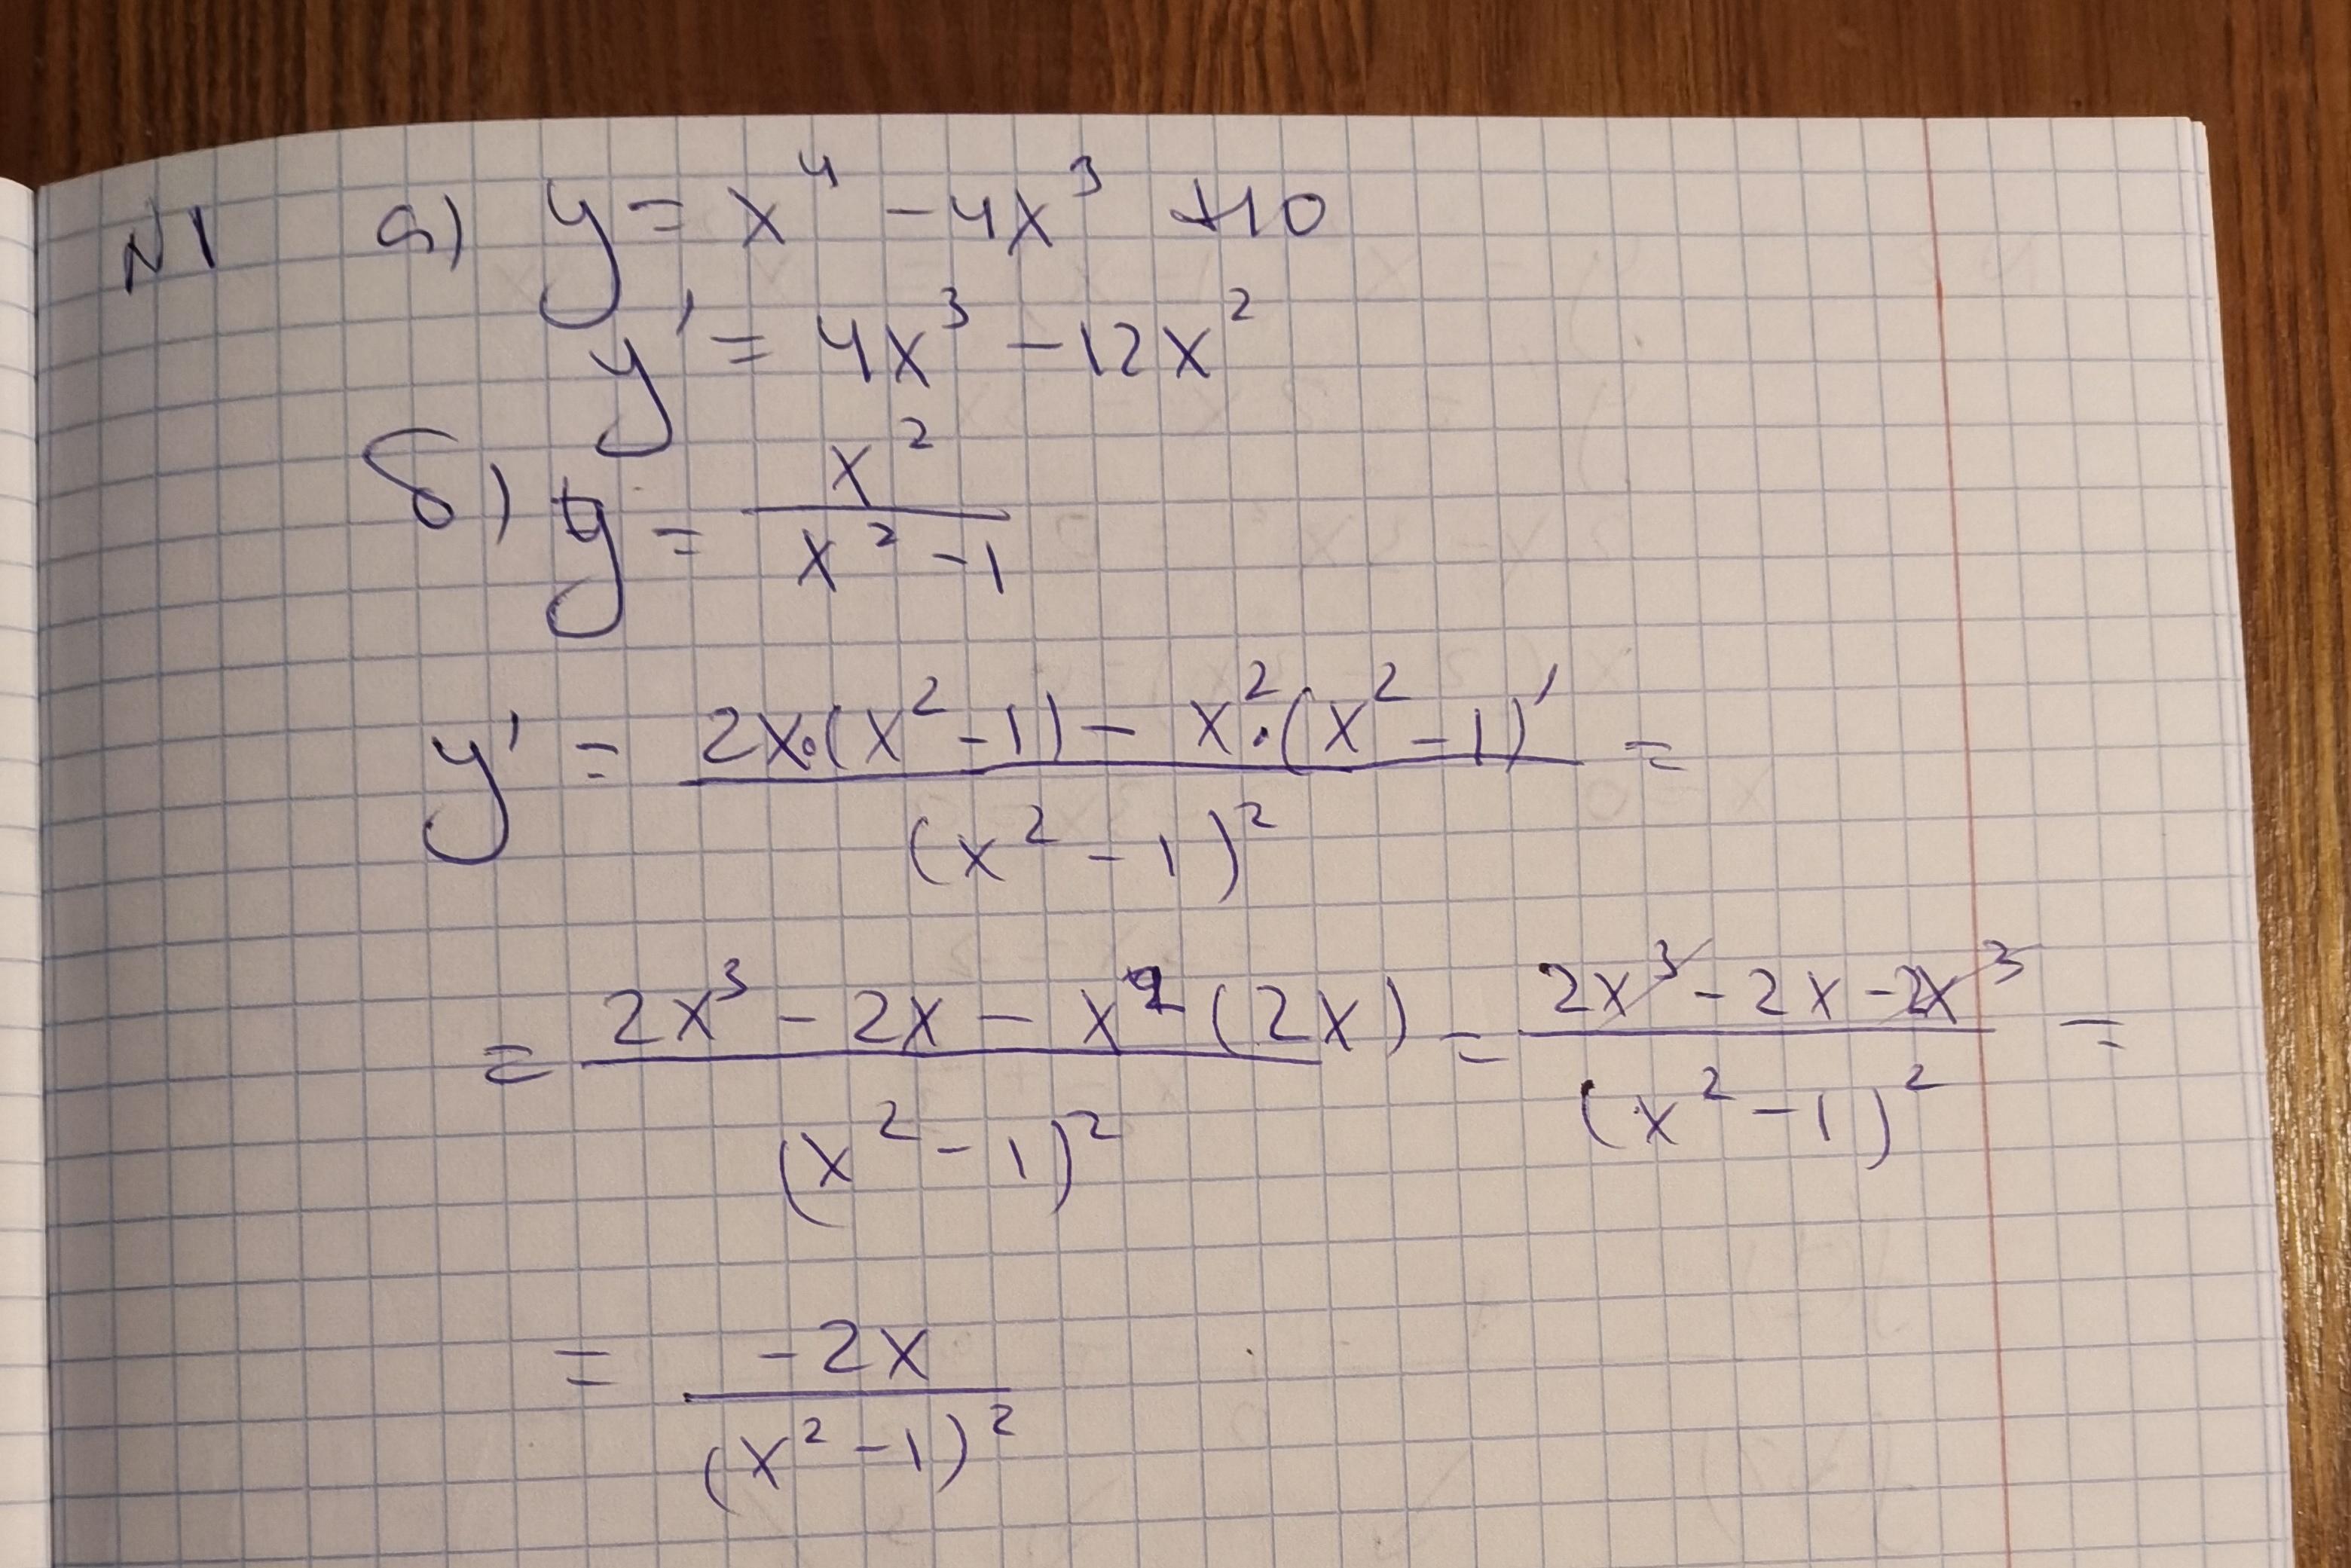 N1 а) y = x⁴ - 4x³ + 10
y' = 4x³ - 12x²
б) y = x² / (x² - 1)
y' = (2x·(x² - 1) - x²·(x² - 1)') / (x² - 1)² =
= (2x³ - 2x - x²(2x)) / (x² - 1)² = (2x³ - 2x - 2x³) / (x² - 1)² =
= -2x / (x² - 1)²